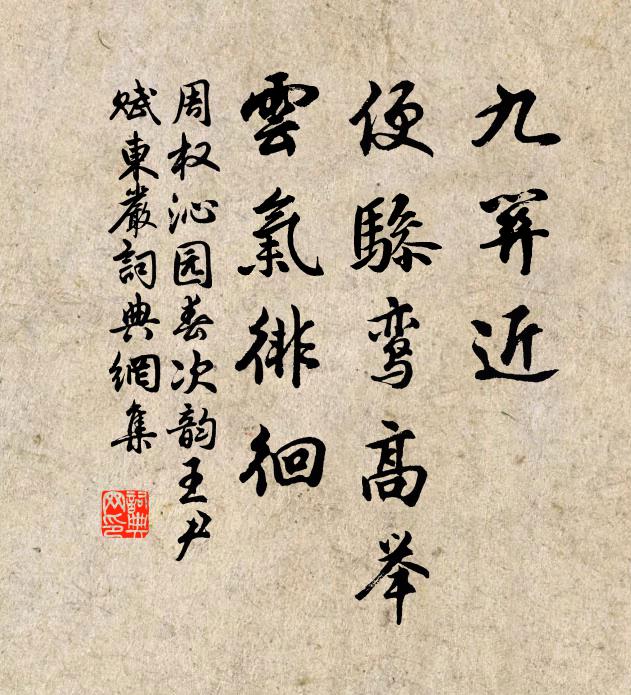 九关近
便驂鸾高举
雲氣徘徊
周权沁园春次韵王尹
赋東巖詞典網集
詞典网印